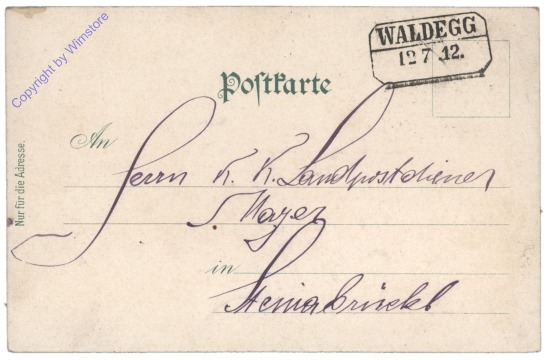 Copyright by Wimstore
WALDEGG
12 7 12.
Postkarte
An
Herrn K. K. Landpostdiener
J. Mayer
in
Steinabrückl
Nur für die Adresse.